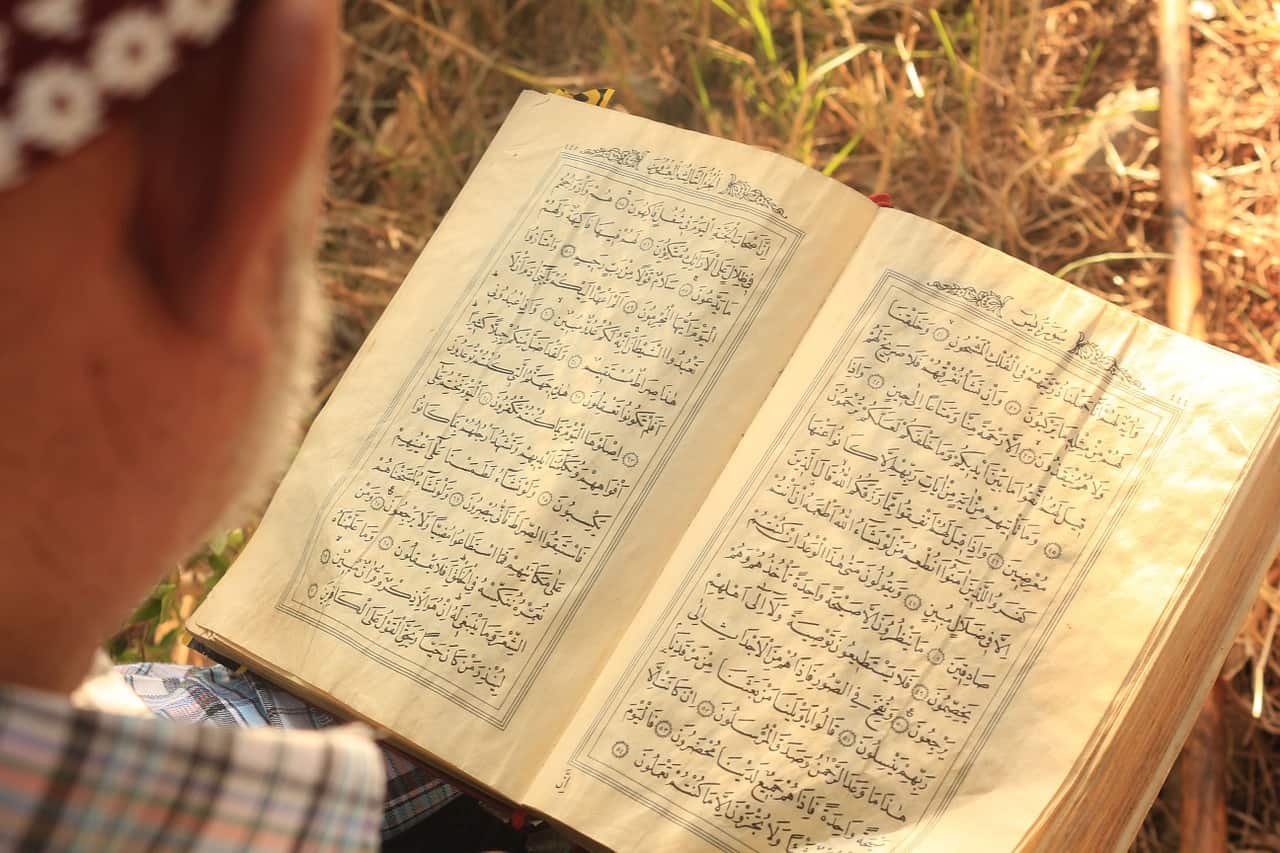 سُورَةُ يٰسٓ
وَاٰيَةٌ لَهُمْ اَنَّا حَمَلْنَا ذُرِّيَّتَهُمْ فِي الْفُلْكِ الْمَشْحُونِ ﴿٤١﴾ وَخَلَقْنَا
لَهُمْ مِنْ مِثْلِهِ مَا يَرْكَبُونَ ﴿٤٢﴾ وَاِنْ نَشَأْ نُغْرِقْهُمْ فَلَا صَرِيخَ لَهُمْ
وَلَا هُمْ يُنْقَذُونَ ﴿٤٣﴾ اِلَّا رَحْمَةً مِنَّا وَمَتَاعًا اِلٰى حِينٍ ﴿٤٤﴾ وَاِذَا
قِيلَ لَهُمُ اتَّقُوا مَا بَيْنَ اَيْدِيكُمْ وَمَا خَلْفَكُمْ لَعَلَّكُمْ تُرْحَمُونَ
﴿٤٥﴾ وَمَا تَأْتِيهِمْ مِنْ اٰيَةٍ مِنْ اٰيَاتِ رَبِّهِمْ اِلَّا كَانُوا عَنْهَا
مُعْرِضِينَ ﴿٤٦﴾ وَاِذَا قِيلَ لَهُمْ اَنْفِقُوا مِمَّا رَزَقَكُمُ اللّٰهُ قَالَ الَّذِينَ
كَفَرُوا لِلَّذِينَ اٰمَنُوا اَنُطْعِمُ مَنْ لَوْ يَشَاءُ اللّٰهُ اَطْعَمَهُ اِنْ اَنْتُمْ
اِلَّا فِي ضَلَالٍ مُبِينٍ ﴿٤٧﴾ وَيَقُولُونَ مَتٰى هٰذَا الْوَعْدُ اِنْ كُنْتُمْ
صَادِقِينَ ﴿٤٨﴾ مَا يَنْظُرُونَ اِلَّا صَيْحَةً وَاحِدَةً تَأْخُذُهُمْ وَهُمْ
يَخِصِّمُونَ ﴿٤٩﴾ فَلَا يَسْتَطِيعُونَ تَوْصِيَةً وَلَا اِلٰى اَهْلِهِمْ
يَرْجِعُونَ ﴿٥٠﴾ وَنُفِخَ فِي الصُّورِ فَاِذَا هُمْ مِنَ الْاَجْدَاثِ اِلٰى
رَبِّهِمْ يَنْسِلُونَ ﴿٥١﴾ قَالُوا يَا وَيْلَنَا مَنْ بَعَثَنَا مِنْ مَرْقَدِنَا
هٰذَا مَا وَعَدَ الرَّحْمٰنُ وَصَدَقَ الْمُرْسَلُونَ ﴿٥٢﴾ اِنْ كَانَتْ اِلَّا
صَيْحَةً وَاحِدَةً فَاِذَا هُمْ جَمِيعٌ لَدَيْنَا مُحْضَرُونَ ﴿٥٣﴾ فَالْيَوْمَ
شَيْئًا وَلَا تُجْزَوْنَ اِلَّا مَا كُنْتُمْ تَعْمَلُونَ ﴿٥٤﴾
اِنَّ
اَلْجُزْءُ الثَّالِثُ وَالْعِشْرُونَ
اِنَّ اَصْحَابَ الْجَنَّةِ الْيَوْمَ فِي شُغُلٍ فَاكِهُونَ ﴿٥٥﴾ هُمْ وَاَزْوَاجُهُمْ
فِي ظِلَالٍ عَلَى الْاَرَائِكِ مُتَّكِؤُنَ ﴿٥٦﴾ لَهُمْ فِيهَا فَاكِهَةٌ وَلَهُمْ
مَا يَدَّعُونَ ﴿٥٧﴾ سَلَامٌ قَوْلًا مِنْ رَبٍّ رَحِيمٍ ﴿٥٨﴾ وَامْتَازُوا
الْيَوْمَ اَيُّهَا الْمُجْرِمُونَ ﴿٥٩﴾ اَلَمْ اَعْهَدْ اِلَيْكُمْ يَا بَنِي اٰدَمَ اَنْ لَا
تَعْبُدُوا الشَّيْطَانَ اِنَّهُ لَكُمْ عَدُوٌّ مُبِينٌ ﴿٦٠﴾ وَاَنِ اعْبُدُونِي
هٰذَا صِرَاطٌ مُسْتَقِيمٌ ﴿٦١﴾ وَلَقَدْ اَضَلَّ مِنْكُمْ جِبِلًّا كَثِيرًا
اَفَلَمْ تَكُونُوا تَعْقِلُونَ ﴿٦٢﴾ هٰذِهِ جَهَنَّمُ الَّتِي كُنْتُمْ تُوعَدُونَ
﴿٦٣﴾ اِصْلَوْهَا الْيَوْمَ بِمَا كُنْتُمْ تَكْفُرُونَ ﴿٦٤﴾ اَلْيَوْمَ نَخْتِمُ عَلٰى
اَفْوَاهِهِمْ وَتُكَلِّمُنَا اَيْدِيهِمْ وَتَشْهَدُ اَرْجُلُهُمْ بِمَا كَانُوا
يَكْسِبُونَ ﴿٦٥﴾ وَلَوْ نَشَاءُ لَطَمَسْنَا عَلٰى اَعْيُنِهِمْ
فَاسْتَبَقُوا الصِّرَاطَ فَاَنّٰى يُبْصِرُونَ ﴿٦٦﴾ وَلَوْ نَشَاءُ لَمَسَخْنَاهُمْ
عَلٰى مَكَانَتِهِمْ فَمَا اسْتَطَاعُوا مُضِيًّا وَلَا يَرْجِعُونَ ﴿٦٧﴾ وَمَنْ
نُعَمِّرْهُ نُنَكِّسْهُ فِي الْخَلْقِ اَفَلَا يَعْقِلُونَ ﴿٦٨﴾ وَمَا عَلَّمْنَاهُ
الشِّعْرَ وَمَا يَنْبَغِي لَهُ اِنْ هُوَ اِلَّا ذِكْرٌ وَقُرْاٰنٌ مُبِينٌ ﴿٦٩﴾
لِيُنْذِرَ مَنْ كَانَ حَيًّا وَيَحِقَّ الْقَوْلُ عَلَى الْكَافِرِينَ ﴿٧٠﴾